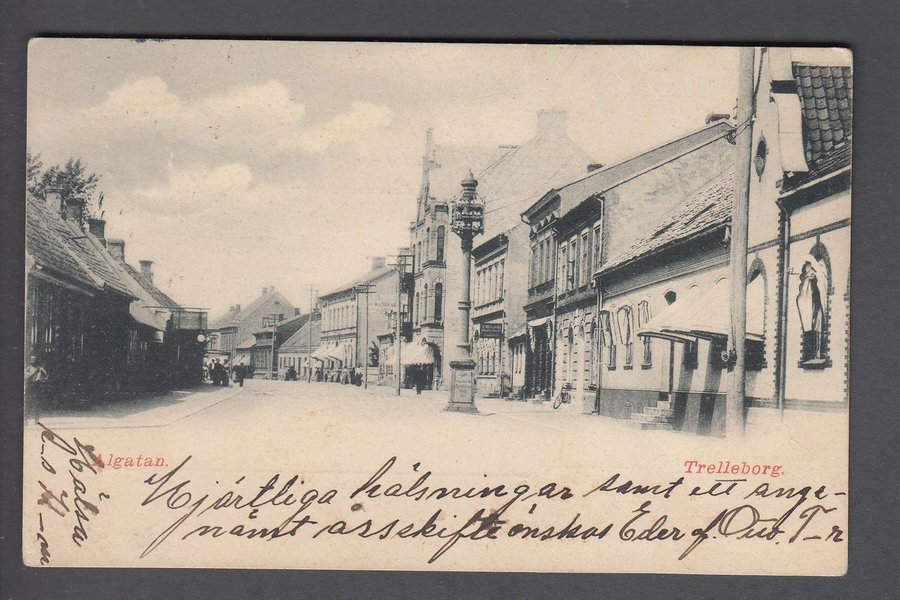 Algatan.
Trelleborg.
Hjärtliga hälsningar samt ett ange-
nämt årsskifte önskas Eder af
Hälsa